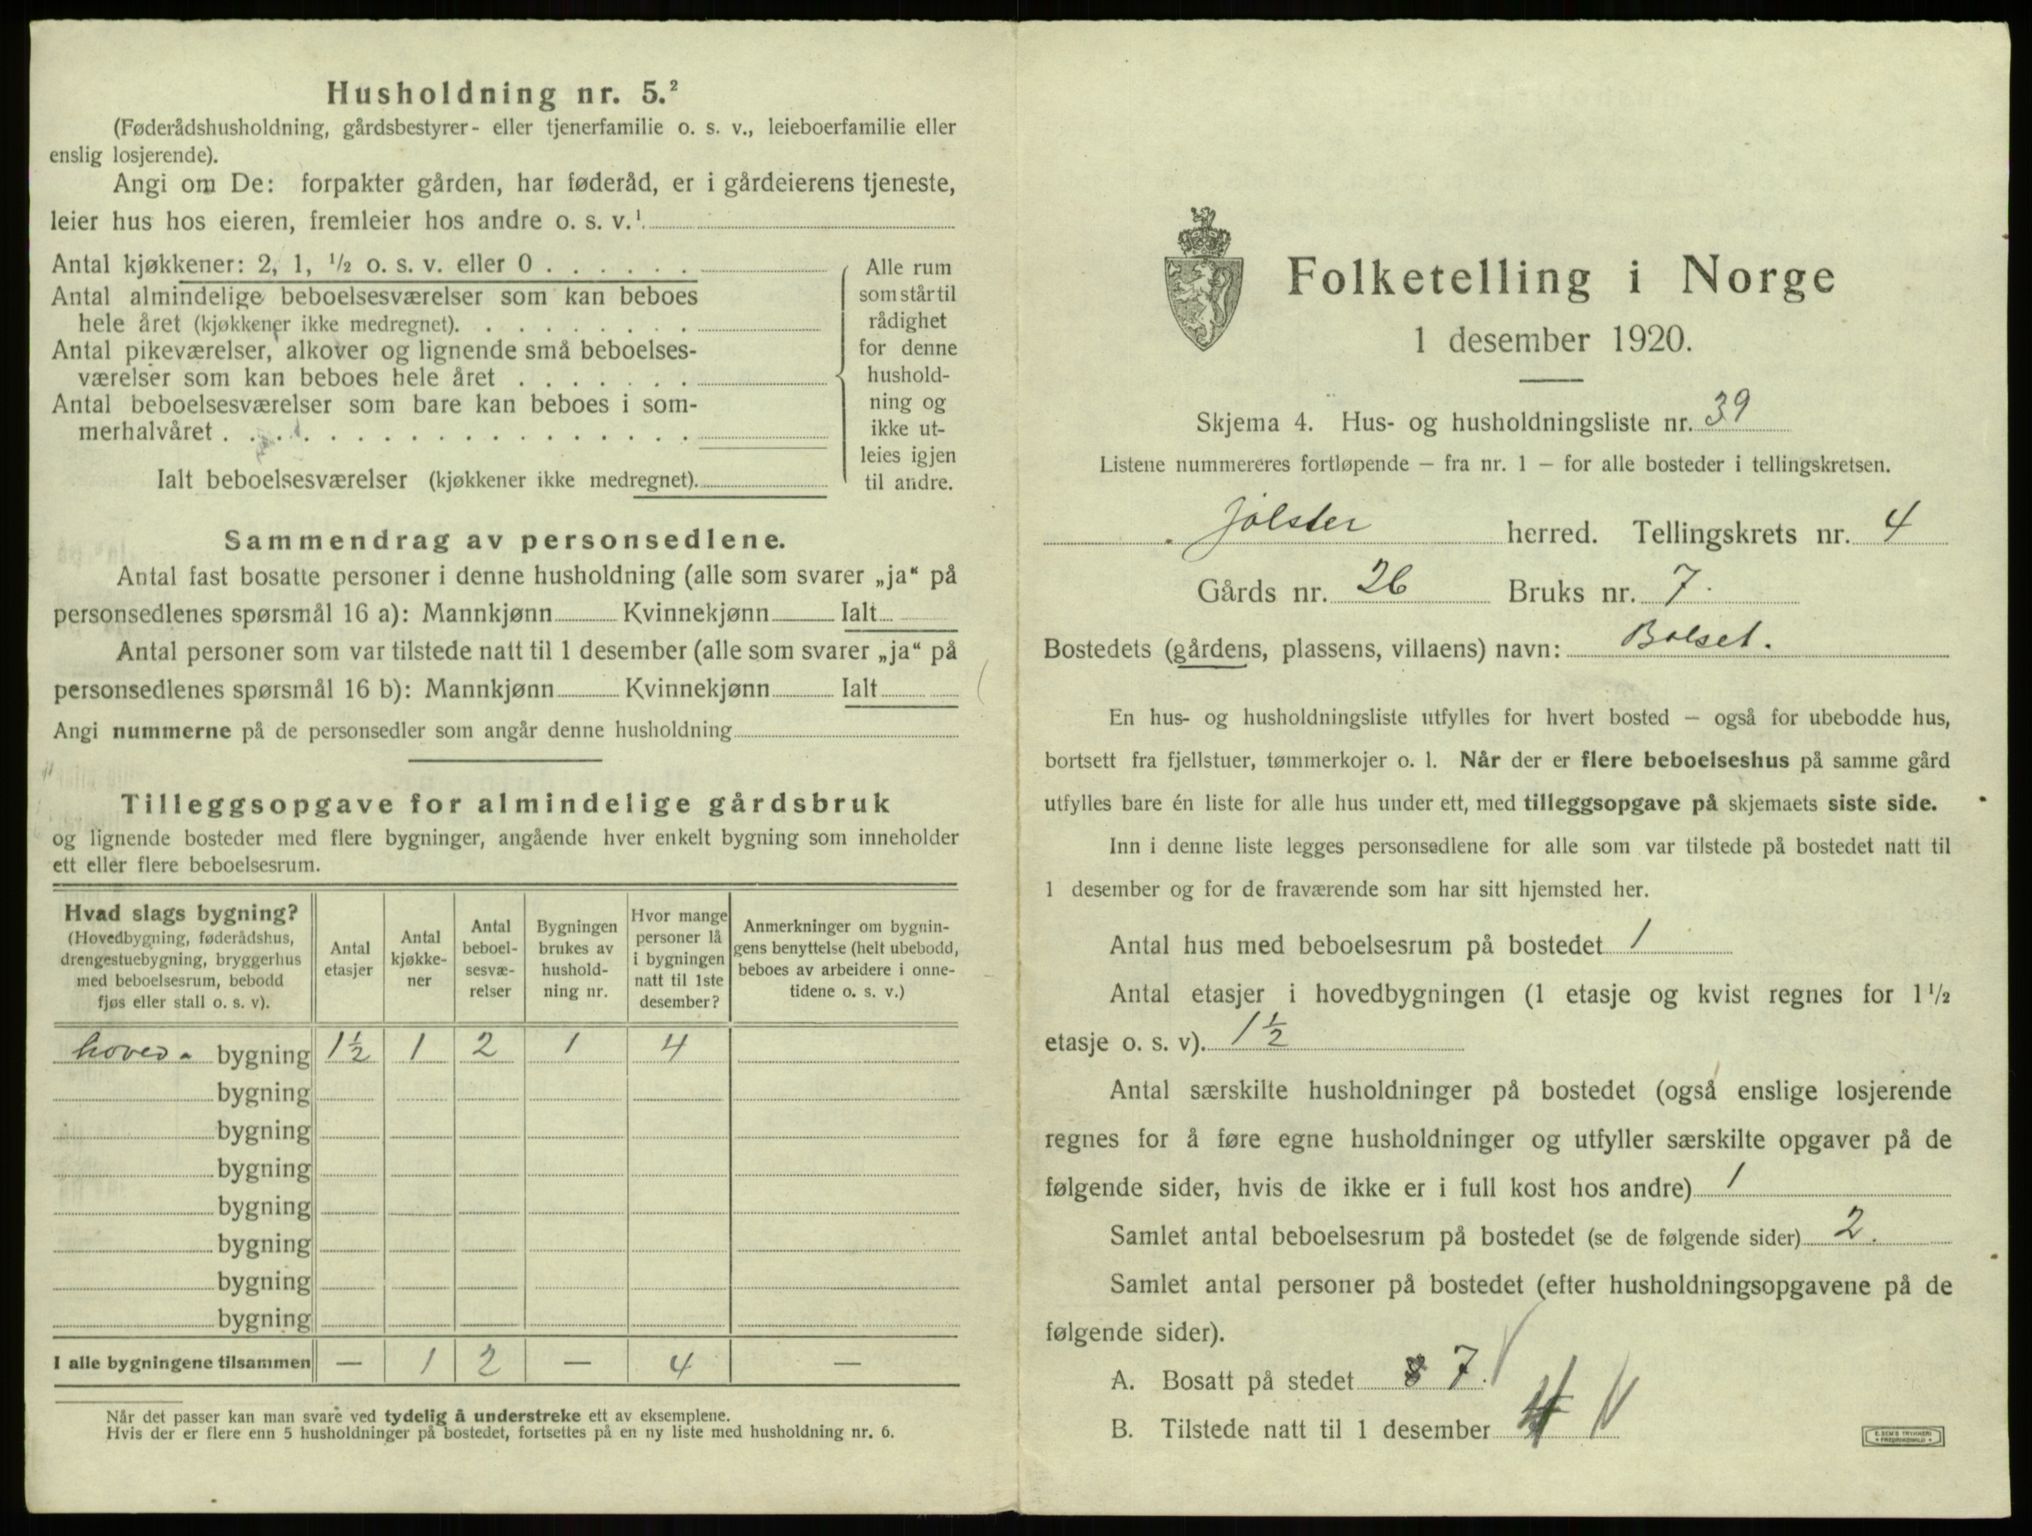 Husholdning nr. 5.²
(Føderådshusholdning, gårdsbestyrer- eller tjenerfamilie o. s. v., leieboerfamilie eller
enslig losjerende).
Angi om De: forpakter gården, har føderåd, er i gårdeierens tjeneste,
leier hus hos eieren, fremleier hos andre o. s. v.¹
Antal kjøkkener: 2, 1, ½ o. s. v. eller 0 . . . . . .
Antal almindelige beboelsesværelser som kan beboes
hele året (kjøkkener ikke medregnet). . . . . . . . .
Antal pikeværelser, alkover og lignende små beboelses-
værelser som kan beboes hele året . . . . . . .
Antal beboelsesværelser som bare kan beboes i som-
merhalvåret . . . . . . . . . . . . . . . . . .
Ialt beboelsesværelser (kjøkkener ikke medregnet).
Alle rum
som står til
rådighet
for denne
hushold-
ning og
ikke ut-
leies igjen
til andre.
Sammendrag av personsedlene.
Antal fast bosatte personer i denne husholdning (alle som svarer „ja“ på
personsedlenes spørsmål 16 a): Mannkjønn Kvinnekjønn Ialt
Antal personer som var tilstede natt til 1 desember (alle som svarer „ja“ på
personsedlenes spørsmål 16 b): Mannkjønn Kvinnekjønn Ialt
Angi nummerne på de personsedler som angår denne husholdning
Tilleggsopgave for almindelige gårdsbruk
og lignende bosteder med flere bygninger, angående hver enkelt bygning som inneholder
ett eller flere beboelsesrum.
Hvad slags bygning?
(Hovedbygning, føderådshus,
drengestuebygning, bryggerhus
med beboelsesrum, bebodd
fjøs eller stall o. s. v).
Antal
etasjer
Antal
kjøkke-
ner
Antal
beboel-
sesvæ-
relser
Bygningen
brukes av
hushold-
ning nr.
Hvor mange
personer lå
i bygningen
natt til 1ste
desember?
Anmerkninger om bygnin-
gens benyttelse (helt ubebodd,
beboes av arbeidere i onne-
tidene o. s. v.)
hoved- bygning 1½ 1 2 1 4
bygning
bygning
bygning
bygning
bygning
bygning
bygning
I alle bygningene tilsammen — 1 2 — 4 —
Når det passer kan man svare ved tydelig å understreke ett av eksemplene.
Hvis der er flere enn 5 husholdninger på bostedet, fortsettes på en ny liste med husholdning nr. 6.
Folketelling i Norge
1 desember 1920.
Skjema 4. Hus- og husholdningsliste nr. 39
Listene nummereres fortløpende – fra nr. 1 – for alle bosteder i tellingskretsen.
Jølster herred. Tellingskrets nr. 4
Gårds nr. 26 Bruks nr. 7.
Bostedets (gårdens, plassens, villaens) navn: Bolset.
En hus- og husholdningsliste utfylles for hvert bosted – også for ubebodde hus,
bortsett fra fjellstuer, tømmerkojer o. l. Når der er flere beboelseshus på samme gård
utfylles bare én liste for alle hus under ett, med tilleggsopgave på skjemaets siste side.
Inn i denne liste legges personsedlene for alle som var tilstede på bostedet natt til
1 desember og for de fraværende som har sitt hjemsted her.
Antal hus med beboelsesrum på bostedet 1
Antal etasjer i hovedbygningen (1 etasje og kvist regnes for 1½
etasje o. s. v). 1½
Antal særskilte husholdninger på bostedet (også enslige losjerende
regnes for å føre egne husholdninger og utfyller særskilte opgaver på de
følgende sider, hvis de ikke er i full kost hos andre) 1
Samlet antal beboelsesrum på bostedet (se de følgende sider) 2.
Samlet antal personer på bostedet (efter husholdningsopgavene på de
følgende sider).
A. Bosatt på stedet 7
B. Tilstede natt til 1 desember 4
E. SEM'S TRYKKERI
FREDRIKSHALD